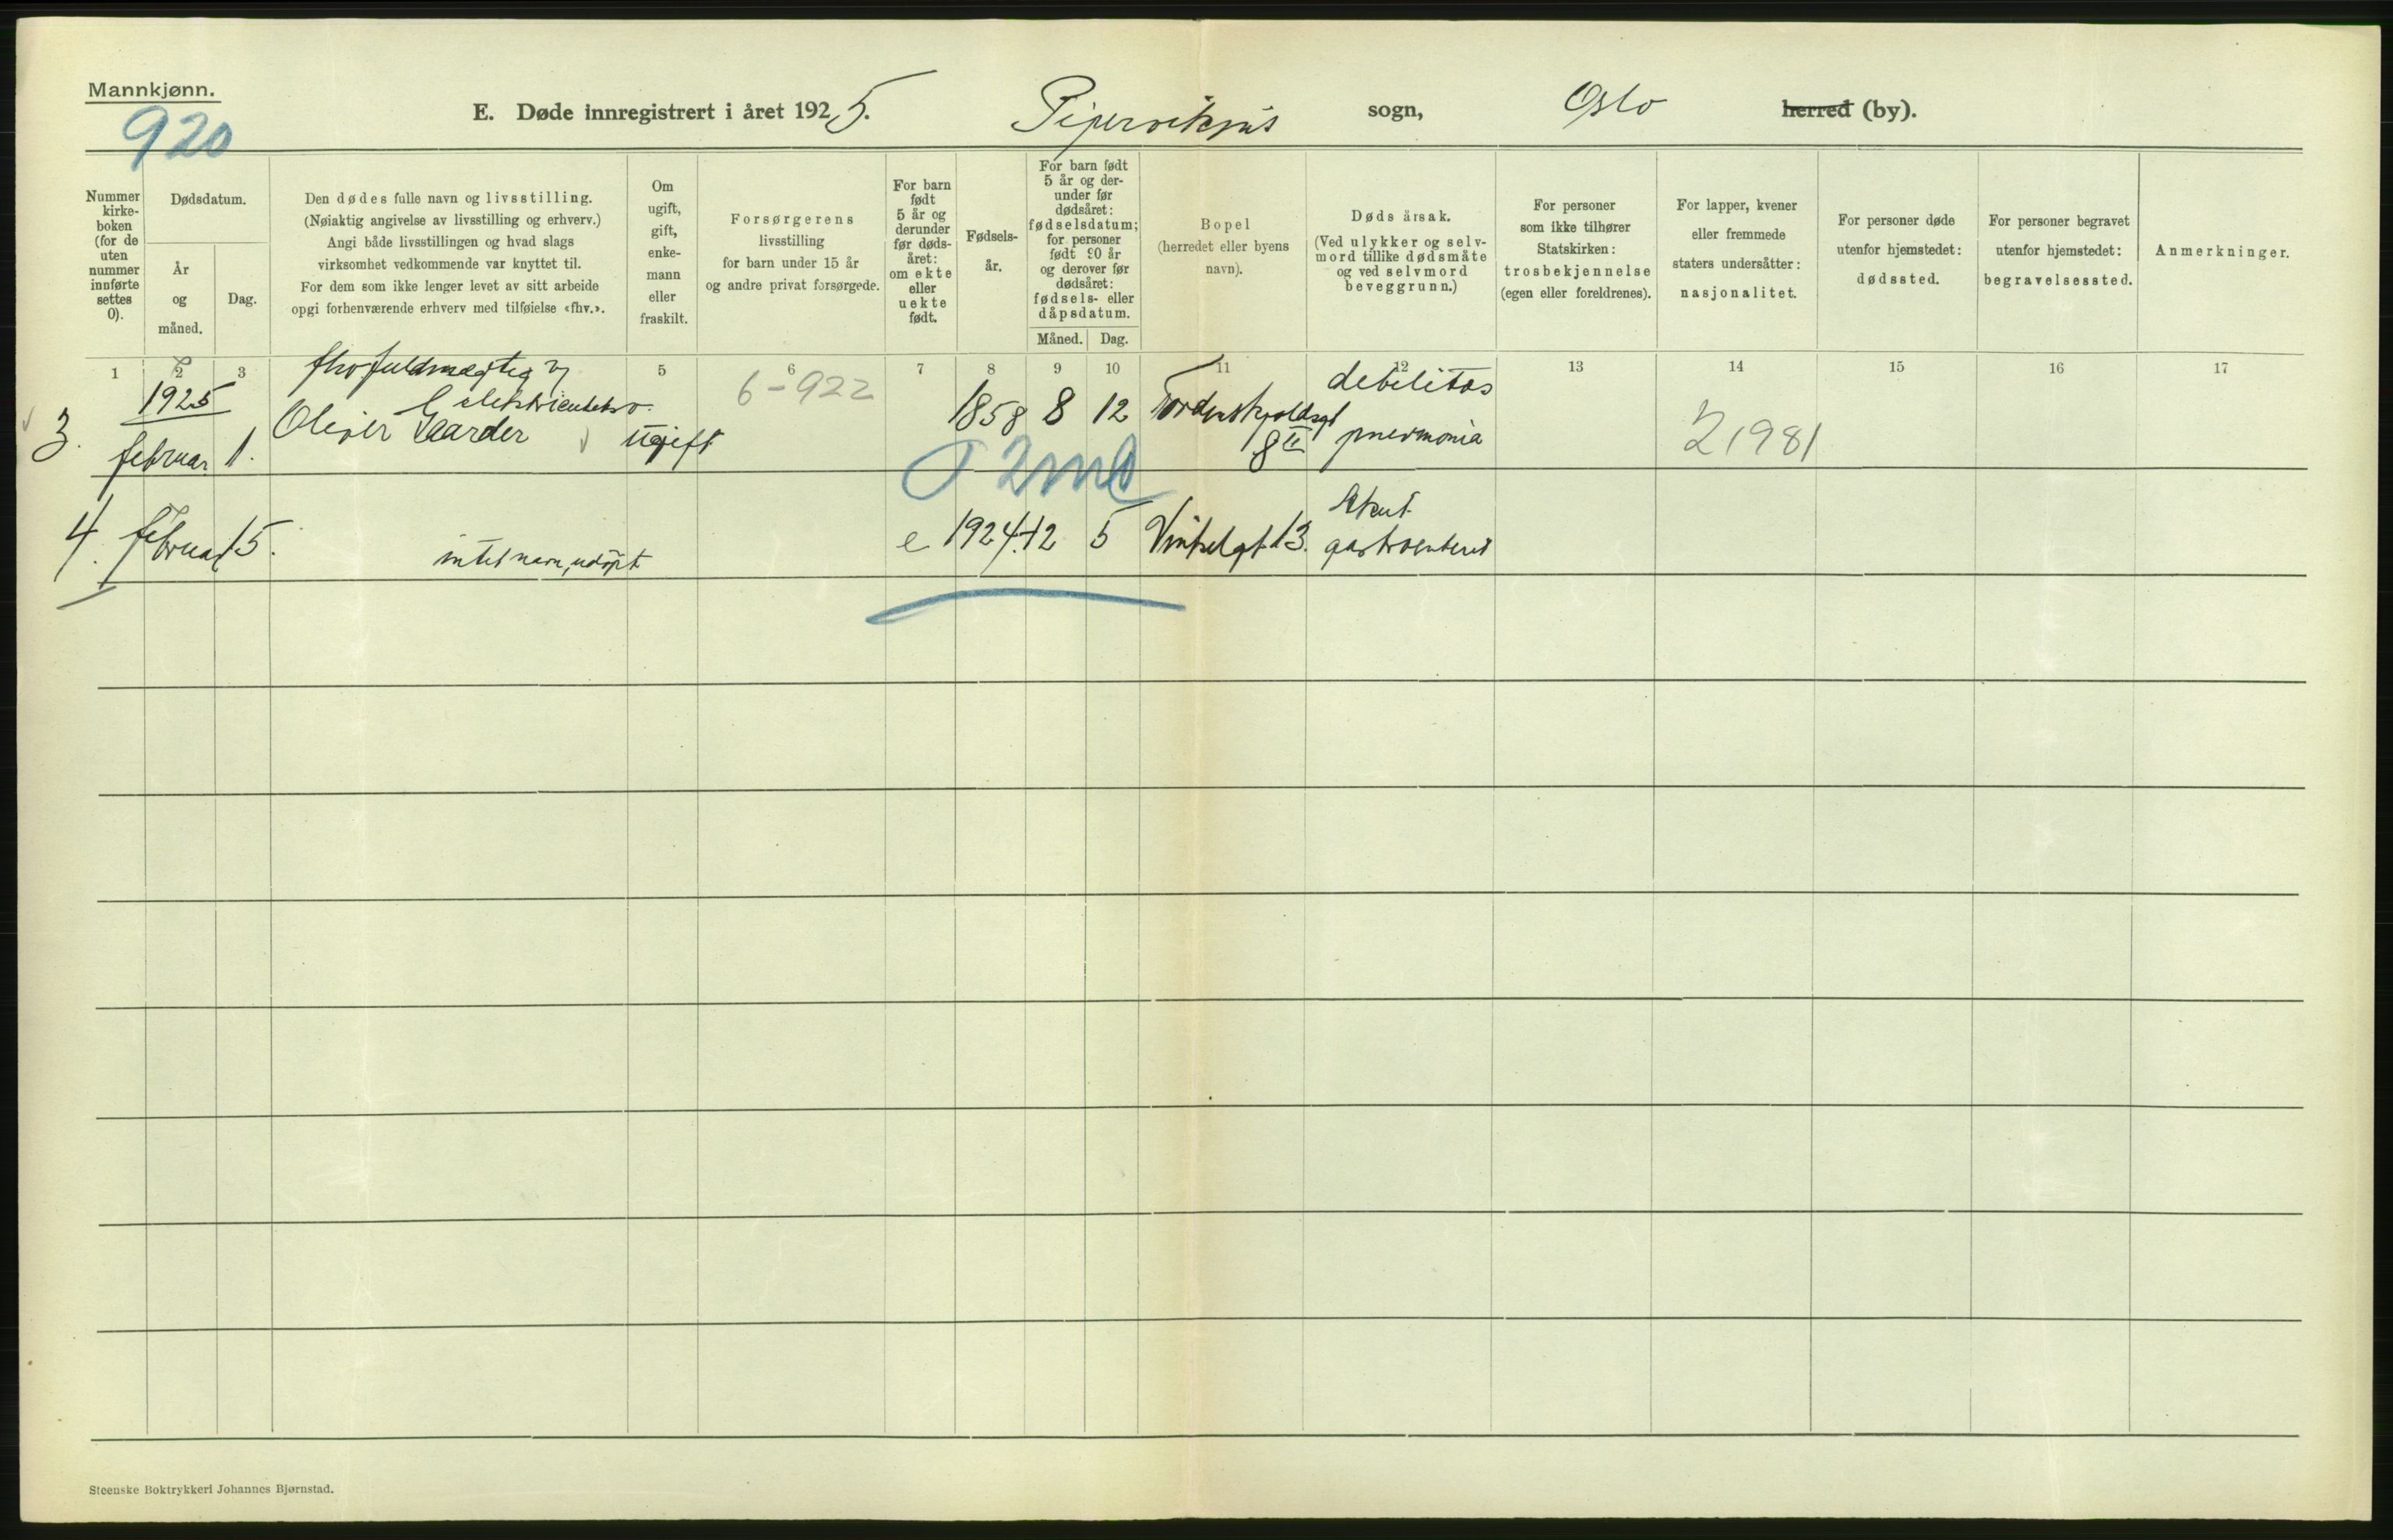 Mannkjønn.
920
E. Døde innregistrert i året 1925. Pipervikens sogn, Oslo herred (by).
Nummer
kirke-
boken
(for de
uten
nummer
innførte
settes
0).
Dødsdatum.
År
og
måned.
Dag.
Den dødes fulle navn og livsstilling.
(Nøiaktig angivelse av livsstilling og erhverv.)
Angi både livsstillingen og hvad slags
virksomhet vedkommende var knyttet til.
For dem som ikke lenger levet av sitt arbeide
opgi forhenværende erhverv med tilføielse «fhv.».
Om
ugift,
gift,
enke-
mann
eller
fraskilt.
Forsørgerens
livsstilling
for barn under 15 år
og andre privat forsørgede.
For barn
født
5 år og
derunder
før døds-
året:
om ekte
eller
uekte
født.
Fødsels-
år.
For barn født
5 år og der-
under før
dødsåret:
fødselsdatum;
for personer
født 90 år
og derover før
dødsåret:
fødsels- eller
dåpsdatum.
Måned. Dag.
Bopel
(herredet eller byens
navn).
Døds årsak.
(Ved ulykker og selv-
mord tillike dødsmåte
og ved selvmord
beveggrunn.)
For personer
som ikke tilhører
Statskirken:
trosbekjennelse
(egen eller foreldrenes).
For lapper, kvener
eller fremmede
staters undersåtter:
nasjonalitet.
For personer døde
utenfor hjemstedet:
dødssted.
For personer begravet
utenfor hjemstedet:
begravelsessted.
Anmerkninger.
1 2 3 5 6 7 8 9 10 11 12 13 14 15 16 17
fhv fuldmægtig v
1925 elektricitetsv. 6-922 debilitas
3. februar 1. Oliver Gaarder ugift 1858 8 12 Tordenskjoldsgt
8 II pneumonia 21981
2 md
Akut
4. februar 15. intet navn, udöpt e 1924 12 5 Vinkelgt 13. gastroenterit
Steenske Boktrykkeri Johannes Bjørnstad.